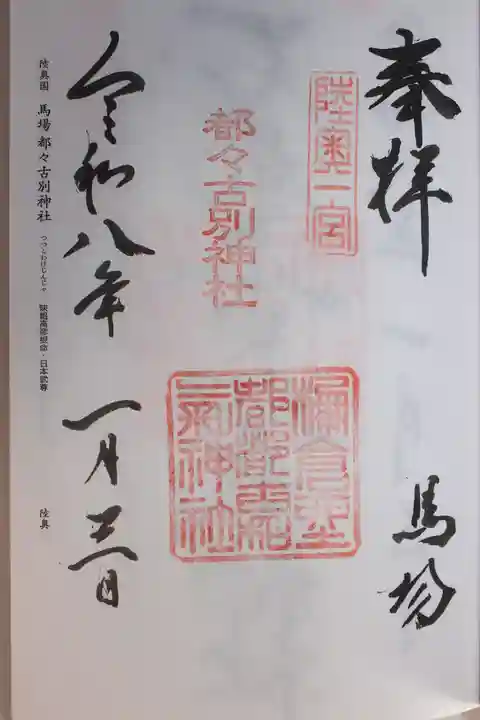 奉拝
馬場
陸奥一宮
都々古別神社
令和八年 一月三日
陸奥国 馬場都々古別神社 つつこわけじんじゃ 味耜高彦根命・日本武尊 陸奥